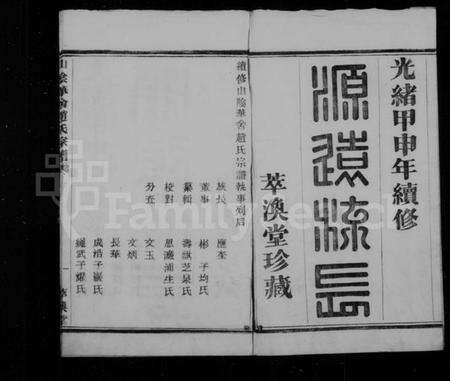 光緒甲申年續修
源遠流長
萃渙堂珍藏
續修山陰華舍趙氏宗譜執事列后
族長 應奎
董事 彬 子均氏
纂輯 壽祺芝泉氏
校對 恩灝浦生氏
分查 文玉
文炳
長華
成浩子嚴氏
繩武子耀氏
山陰華舍趙氏宗譜
FamilySearch